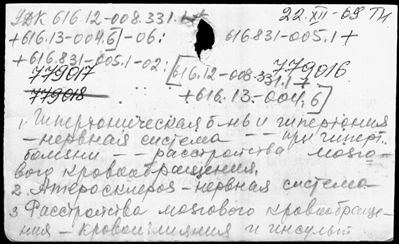 УДК 616.12-008.331.1+ 22.XII-69 Пи
+616.13-004.6]-06: 616.831-005.1+
+616.831-005.1-02:[616.12-008.331.1+
779017 779016
779018 +616.13-004.6]
1. Гипертоническая б-нь и гипертония
- нервная система -- при гиперт.
болезни -- расстройства мозго-
вого кровообращения.
2. Атеросклероз - нервная система
3. Расстройства мозгового кровообраще-
ния - кровоизлияния и инсульт